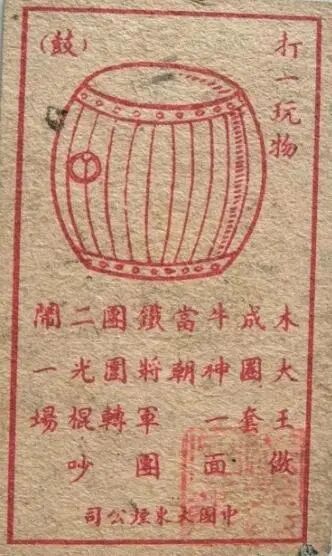 打一玩物
(鼓)
木大王做
成圈套
牛神一面
當朝
鐵將軍團
團圍轉
二光棍吵
鬧一場
中國大東煙公司